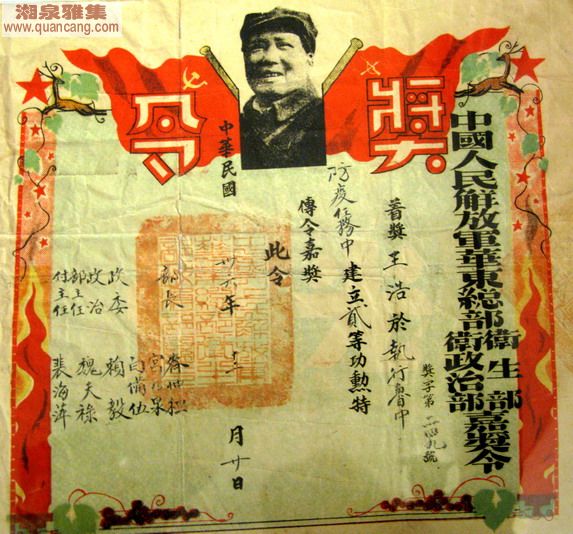 湘泉雅集
www.quancang.com
獎令
中國人民解放軍華東總部衛生部
衛政治部
嘉獎令
獎字第二四九號
著獎王浩於執行魯中
防疫任務中建立貳等功勳特
傳令嘉獎
此令
部長 齊仲桓
宮乃泉
白備伍
政委 賴毅
政治部主任 魏天祿
付主任 裴海萍
中華民國卅六年十二月廿日